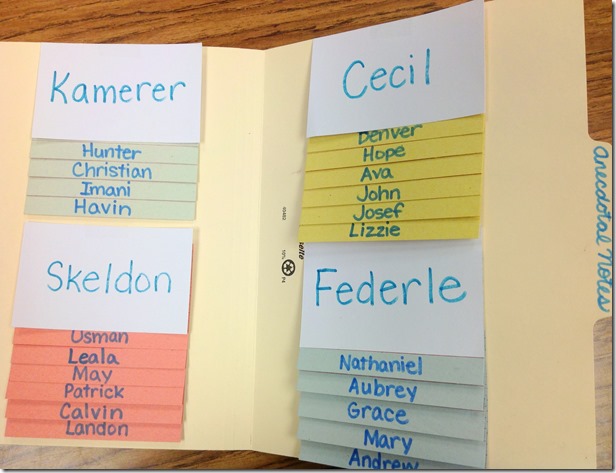 Kamerer
Hunter
Christian
Imani
Havin
Skeldon
Usman
Leala
May
Patrick
Calvin
Landon
Cecil
Denver
Hope
Ava
John
Josef
Lizzie
Federle
Nathaniel
Aubrey
Grace
Mary
Andrew
anecdotal Notes